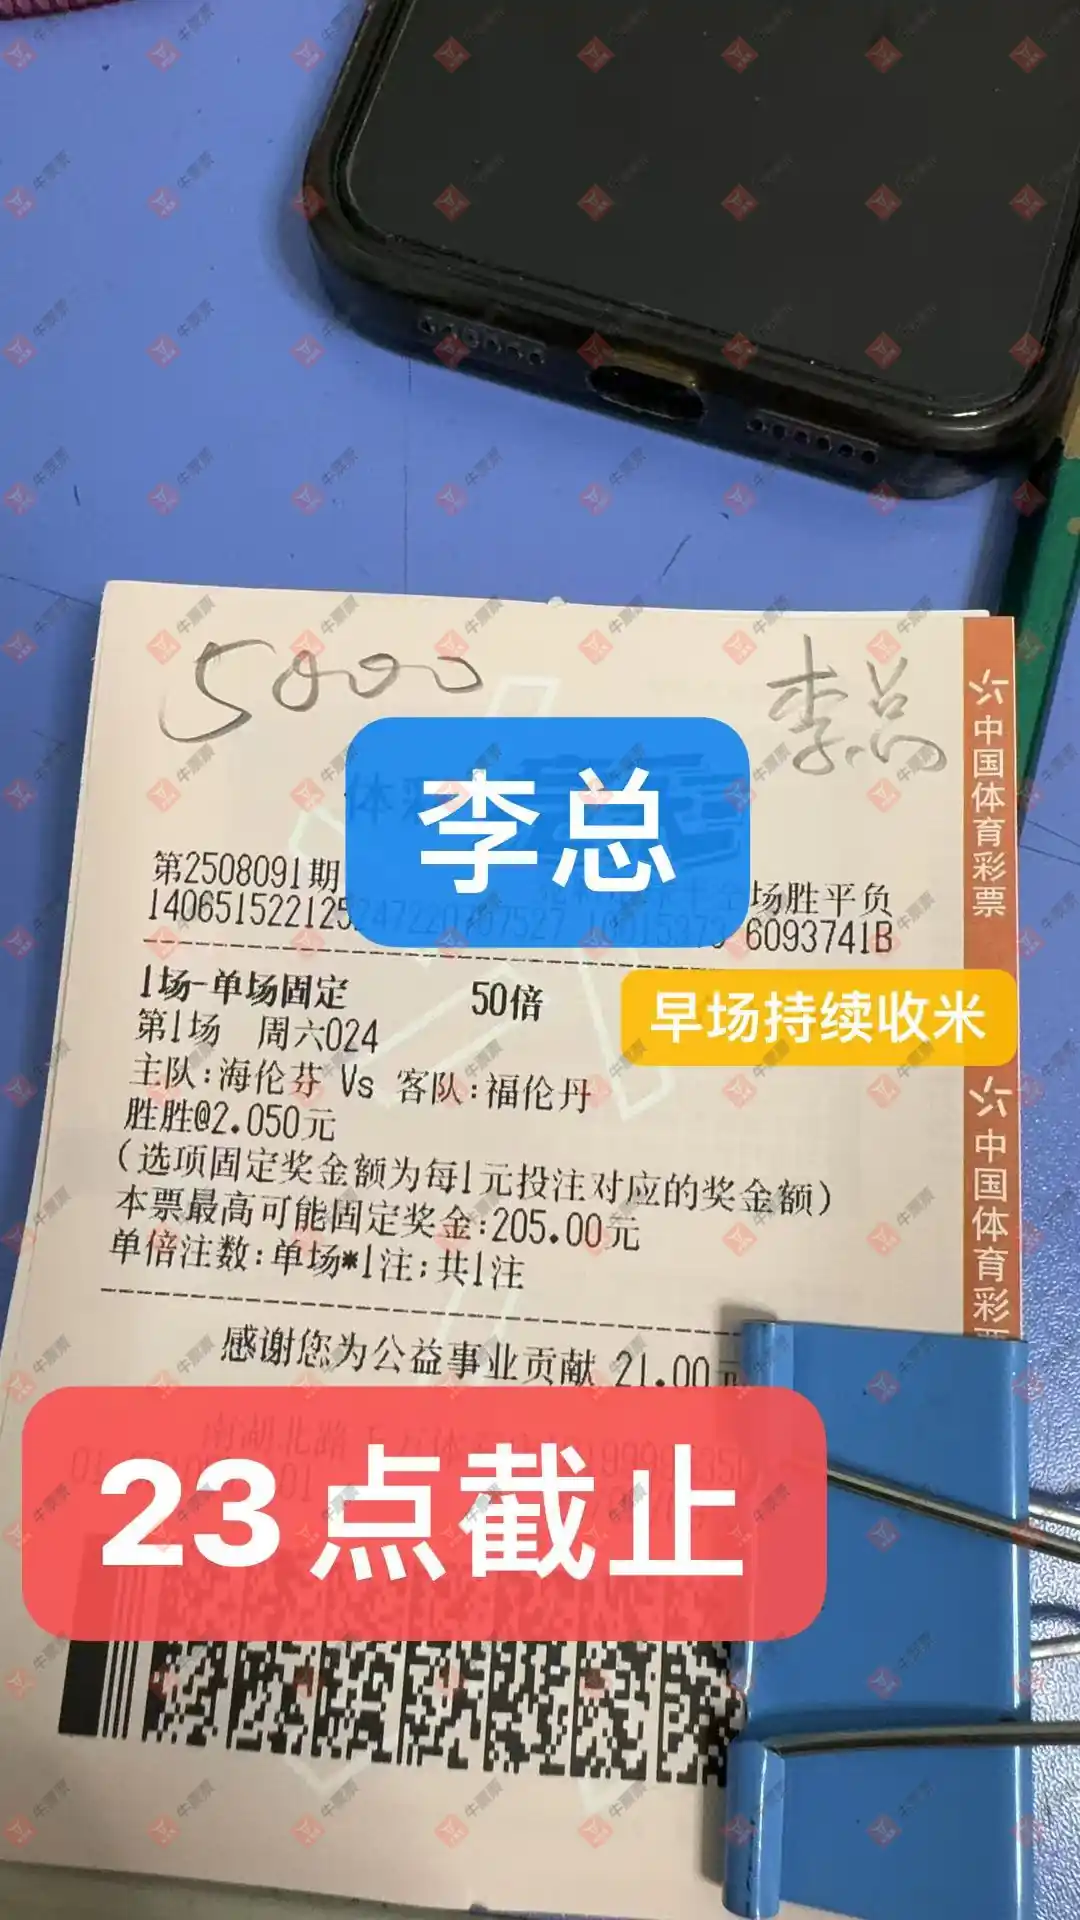 5000 李总
中国体育彩票
体彩
李总
第2508091期
场胜平负
6093741B
1场-单场固定 50倍
早场持续收米
第1场 周六024
主队:海伦芬 Vs 客队:福伦丹
胜胜@2.050元
(选项固定奖金额为每1元投注对应的奖金额)
本票最高可能固定奖金:205.00元
单倍注数:单场*1注;共1注
中国体育彩票
感谢您为公益事业贡献 21.00元
23点截止
牛票票